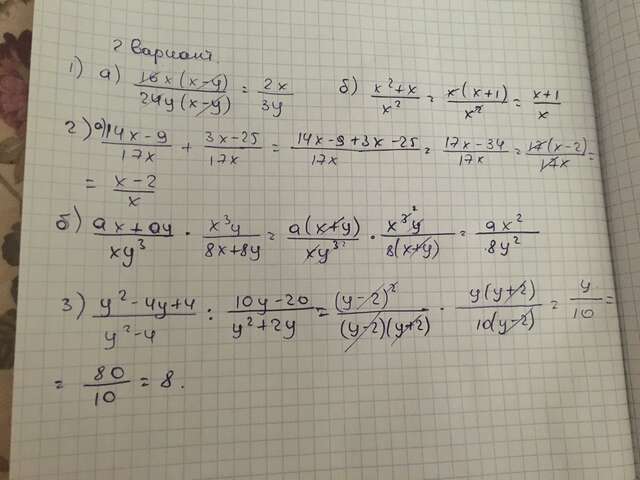 2 Вариант.
1) а) 16x(x-y)/24y(x-y) = 2x/3y б) x²+x/x² = x(x+1)/x² = x+1/x
2) а) 14x-9/17x + 3x-25/17x = 14x-9+3x-25/17x = 17x-34/17x = 17(x-2)/17x =
= x-2/x
б) ax+ay/xy³ · x³y/8x+8y = a(x+y)/xy³² · x³²y/8(x+y) = ax²/8y²
3) y²-4y+4/y²-4 : 10y-20/y²+2y = (y-2)²/(y-2)(y+2) · y(y+2)/10(y-2) = y/10 =
= 80/10 = 8.